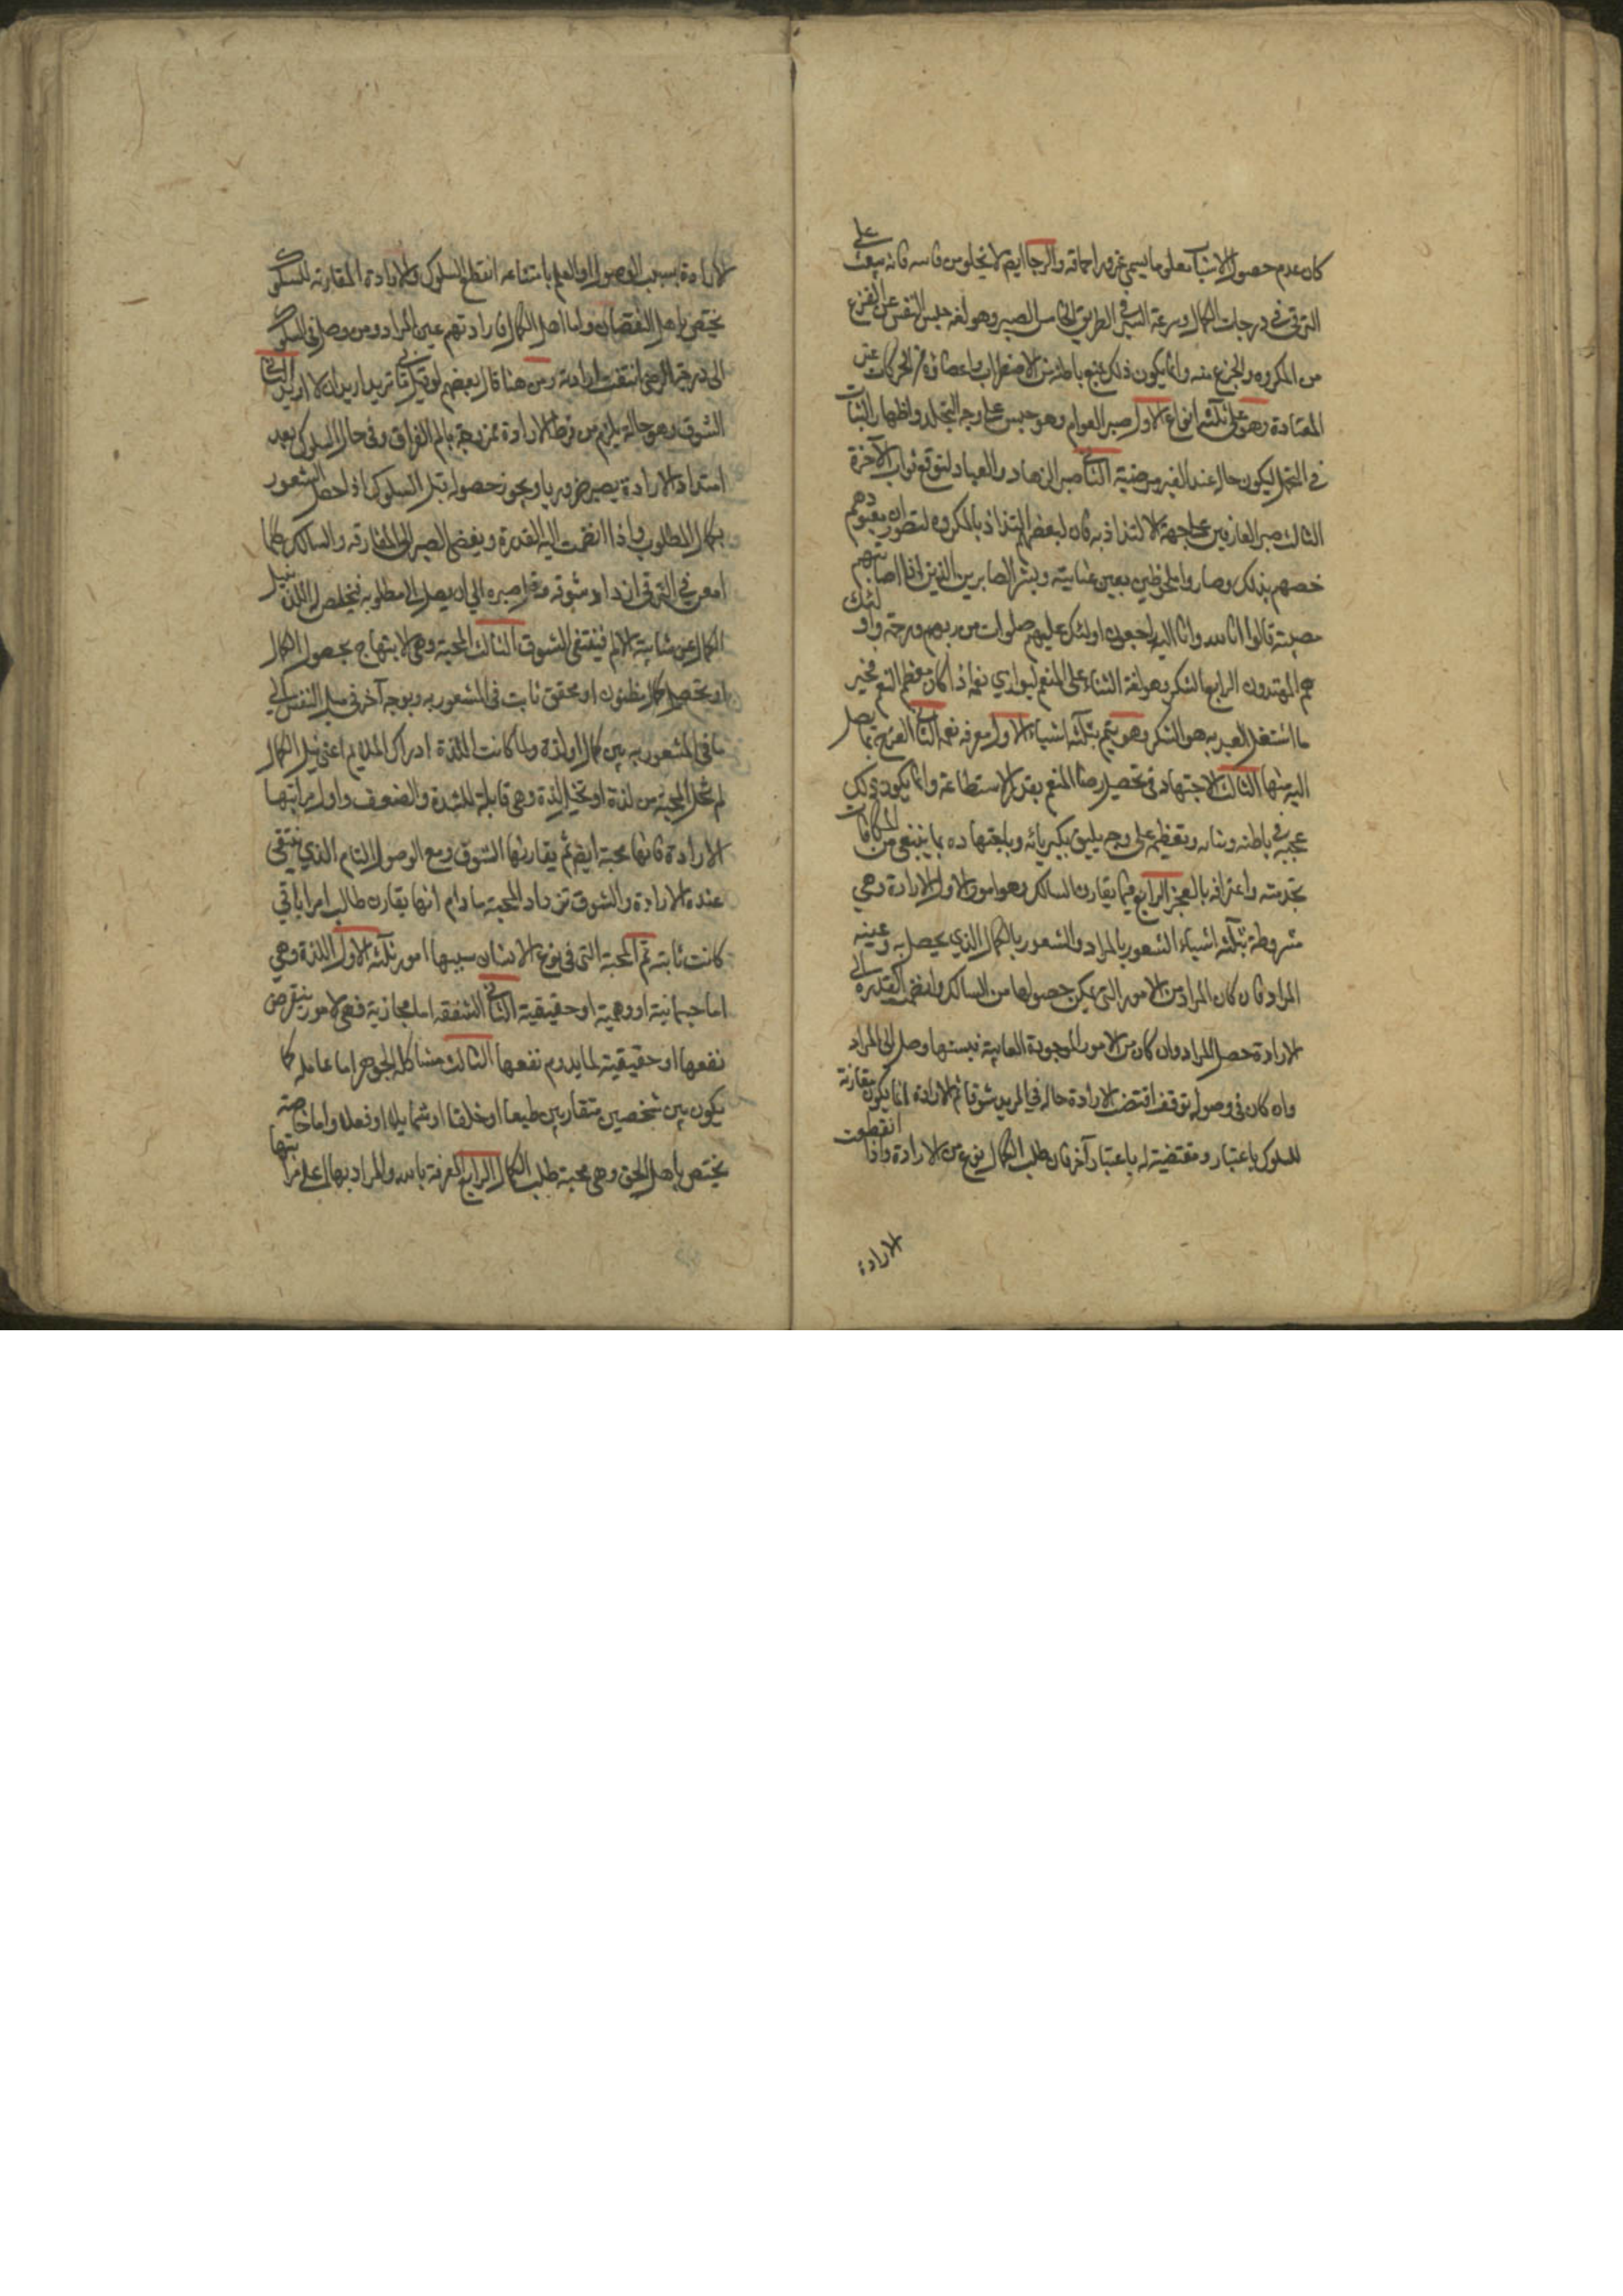 كان عدم حصول الاسباب معلوما يسمى غرورا وحماقة والرجا ايضا لا يخلو من فايده فانه يبعث على
الترقي في درجات الكمال وسرعة السير في الطريق الخامس الصبر وهو لغة حبس النفس عن الفزع
من المكروه والجزع عنه وانما يكون ذلك بمنع باطنه من الاضطراب واعضاؤه من الحركات غير
المعتادة وهو على ثلثة انواع الاول صبر العوام وهو حبس على وجه التجلد واظهار الثبات
في التحمل ليكون حاله عند الغير مرضية الثاني صبر الزهاد والعباد لتوقع ثواب الآخرة
الثالث صبر العارفين على جهة الالتذاذ به فان لبعضهم التذاذ بالمكروه لتصور ان معبودهم
خصهم بذلك وصاروا ملحوظين بعين عنايته وبشر الصابرين الذين اذا اصابتهم
مصيبة قالوا انا لله وانا اليه راجعون اولئك عليهم صلوات من ربهم ورحمة واولئك
هم المهتدون الرابع الشكر وهو لغة الثناء على المنعم ليوازي نعمه اذا كان معظم النعم فخير
ما اشتغل العبد به هو الشكر وهو يتم بثلثة اشياء الاول معرفة نعمه الثاني الفرح بما يصل
اليه منها الثالث الاجتهاد في تحصيل رضا المنعم بقدر الاستطاعة وانما يكون ذلك
بمحبته في باطنه وثنائه وتعظيمه على وجه يليق بكبريائه وباجتهاده بما ينبغي من المكافات
بخدمته واعترافه بالعجز الرابع فيما يقارن السالك وهو امور الاول الارادة وهي
مشروطة بثلثة اشياء الشعور بالمراد والشعور بالكمال الذي يحصل به وغيبة
المراد فان كان المراد من الامور التي يمكن حصولها من السالك وانضمت القدرة الى
الارادة حصل المراد وان كان من الامور الموجودة الغايبة وصل الى المراد
وان كان في وصوله توقف اقتضت الارادة حالة في المريد شوقا ثم الارادة انما يكون مقارنة
للسلوك باعتبار ومقتضية له باعتبار آخر فان طلب الكمال نوع من الارادة واذا انقطعت
الارادة
الارادة بسبب الوصول او العلم بامتناعه انقطع السلوك والارادة المقارنة للسلوك
يختص باهل النقصان واما اهل الكمال فارادتهم عين المراد ومن وصل في السلوك
الى درجة الرضى انتفت ارادته ومن هنا قال بعضهم لو قيل لي ما تريد اريد ان لا اريد الثاني
الشوق وهو حالة يلزم من فرط الارادة ممزوجة بالم الفراق وفي حال السلوك بعد
اشتداد الارادة يصير ضروريا ويجوز حصوله قبل السلوك اذا حصل الشعور
بكمال المطلوب واذا انضمت اليه القدرة وبعض الصبر الى المفارقة والسالك كلما
امعن في الترقي ازداد شوقه وقل صبره الى ان يصل الى مطلوبه فيخلص له اللذة بنيل
الكمال عن شايبة الالم فينتفى الشوق الثالث المحبة وهي الابتهاج بحصول الكمال
او تحصيل كمال مظنون او محقق ثابت في الشعور به وبوجه آخر هي ميل النفس الى
ما في المشعور به من كمال او لذة ولما كانت اللذة ادراك الملايم اعني نيل الكمال
لم تخل المحبة من لذة او تخيل لذة وهي قابلة للشدة والضعف واول مراتبها
الارادة فانها محبة ايضا ثم يقارنها الشوق ومع الوصول التام الذي ينتفى
عنده الارادة والشوق تزداد المحبة ما دام انها يقارن طالب
كانت ثابته ثم المحبة التي في نوع الانسان سببها امور ثلثة الاول اللذة وهي
اما جسمانية او وهمية او حقيقية الثاني الشفقة اما مجازية فهي لامور ينقرض
نفعها او حقيقية لما يدوم نفعها الثالث مشاكلة الجوهر اما عامة كما
يكون بين شخصين متقاربين طبعا او خلقا او شمايل او فعلا واما خاصة
يختص باهل الحق وهي محبة طلب الكمال الرابع المعرفة بالله والمراد بها اعلى مراتبها